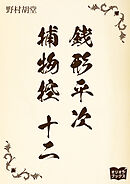 野村胡堂
銭形平次
捕物控 十二
オリオンブックス